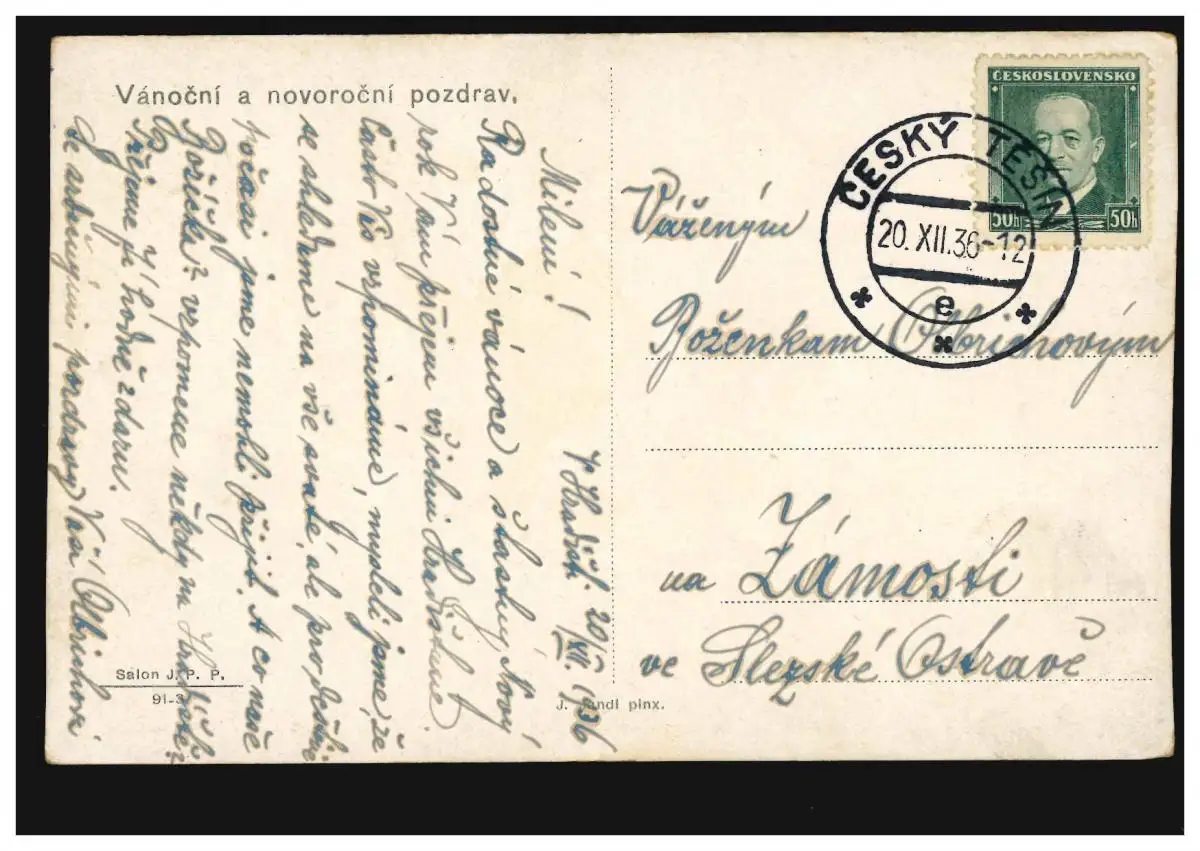 Vánoční a novoroční pozdrav.
V Hradišti. 20/XII. 1936
Milení!
Radostné vánoce a šťastný Nový
rok Vám přejeme všichni Hradišťané.
Často Vás vzpomínáme, mysleli jsme, že
se shledáme na vše svaté, ale pro deštivé
počasí jsme nemohli přijít. A co naše
Božíška? vzpomene někdy na
Přejeme jí hodně zdaru.
Se srdečnými pozdravy Vaši Olbrichovi
Salon J. P. P.
91-3
J. Jandl pinx.
ČESKOSLOVENSKO
50h 50h
ČESKÝ TĚŠÍN
20. XII. 36-12
e
Váženým
Boženkam Olbrichovým
na Zámosti
ve Slezské Ostravě